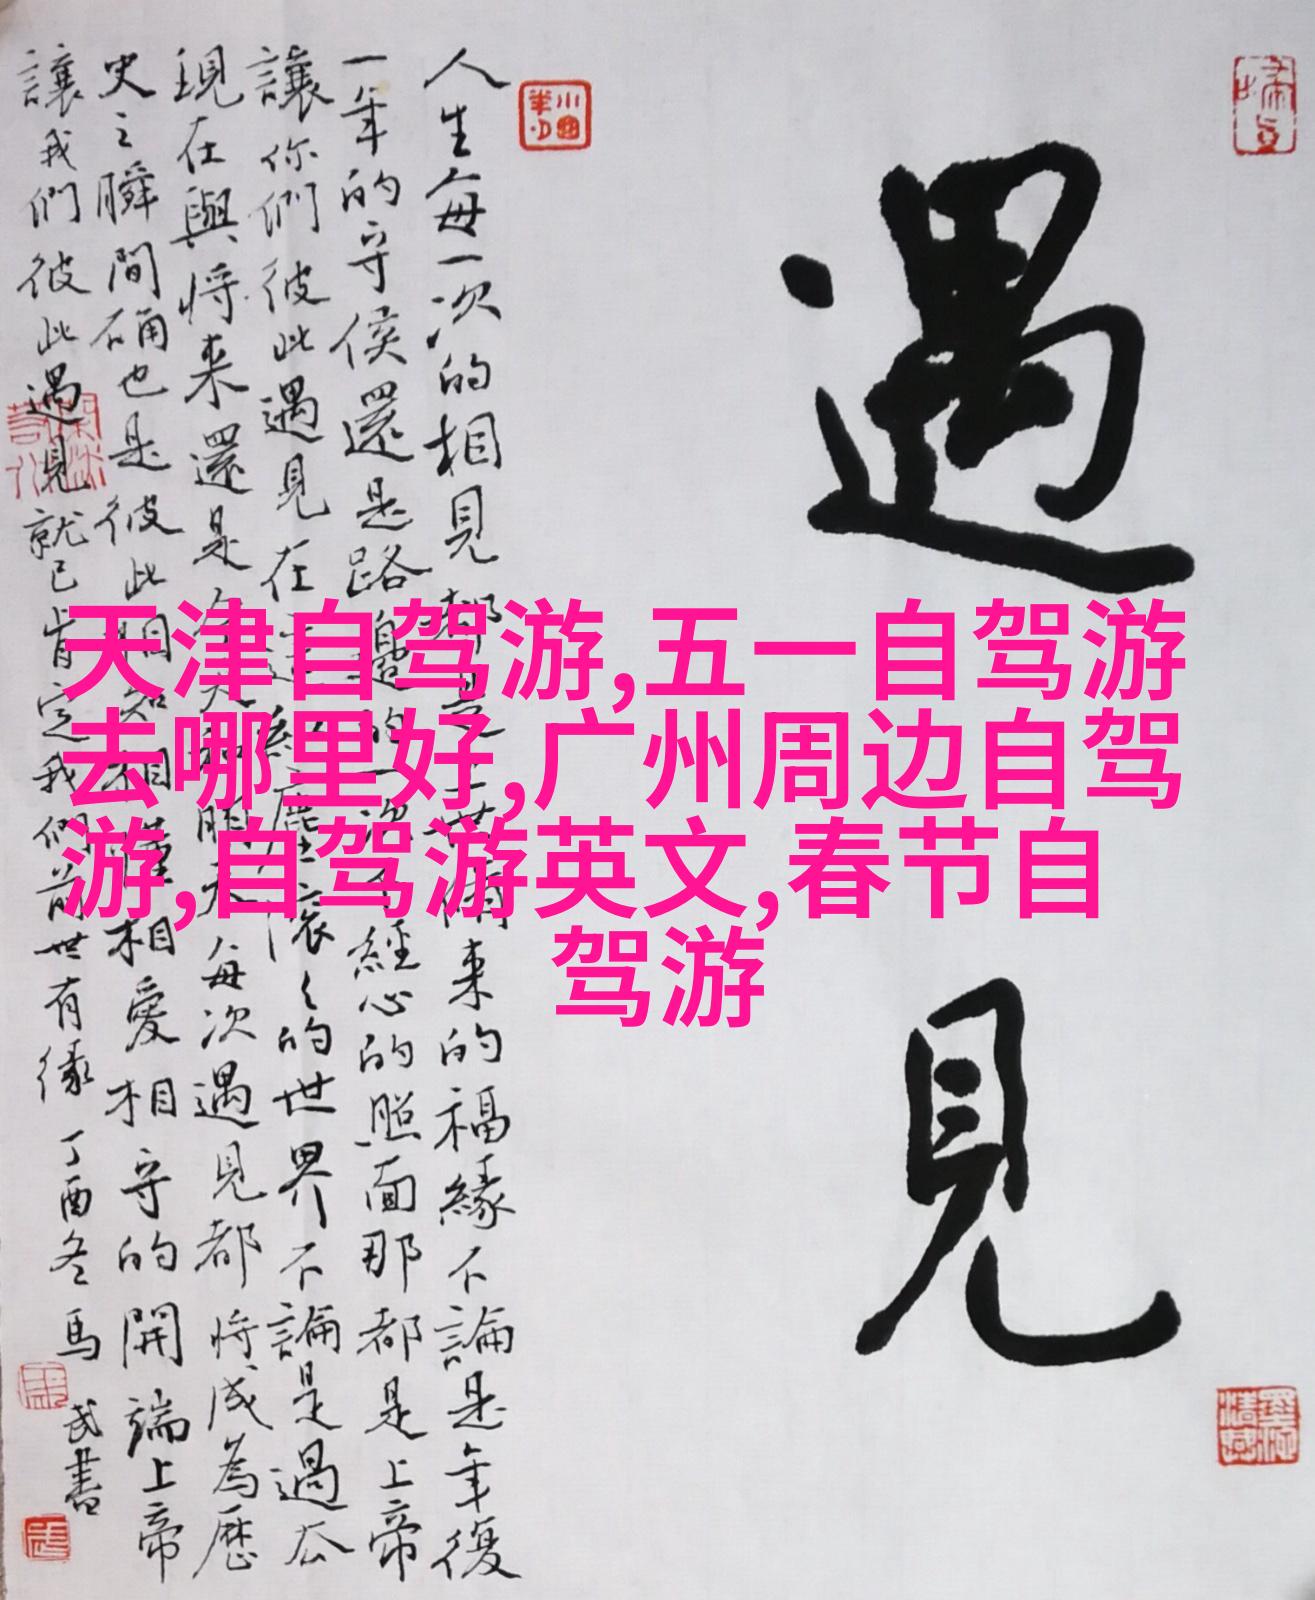 遇見
人生每一次的相見都是上世修来的福緣不論是年復
一年的守侯還是路邊的一次不經心的照面那都是上帝
讓你們彼此遇見在這紅塵滾滾的世界不論是過去
現在與将来還是今天和明天每次遇見都将成為歷
史之瞬間確也是彼此相知相懂相愛相守的開端上帝
讓我們彼此遇見就已肯定我們前世有缘
丁酉冬馬武書
天津自驾游,五一自驾游
去哪里好,广州周边自驾
游,自驾游英文,春节自
驾游